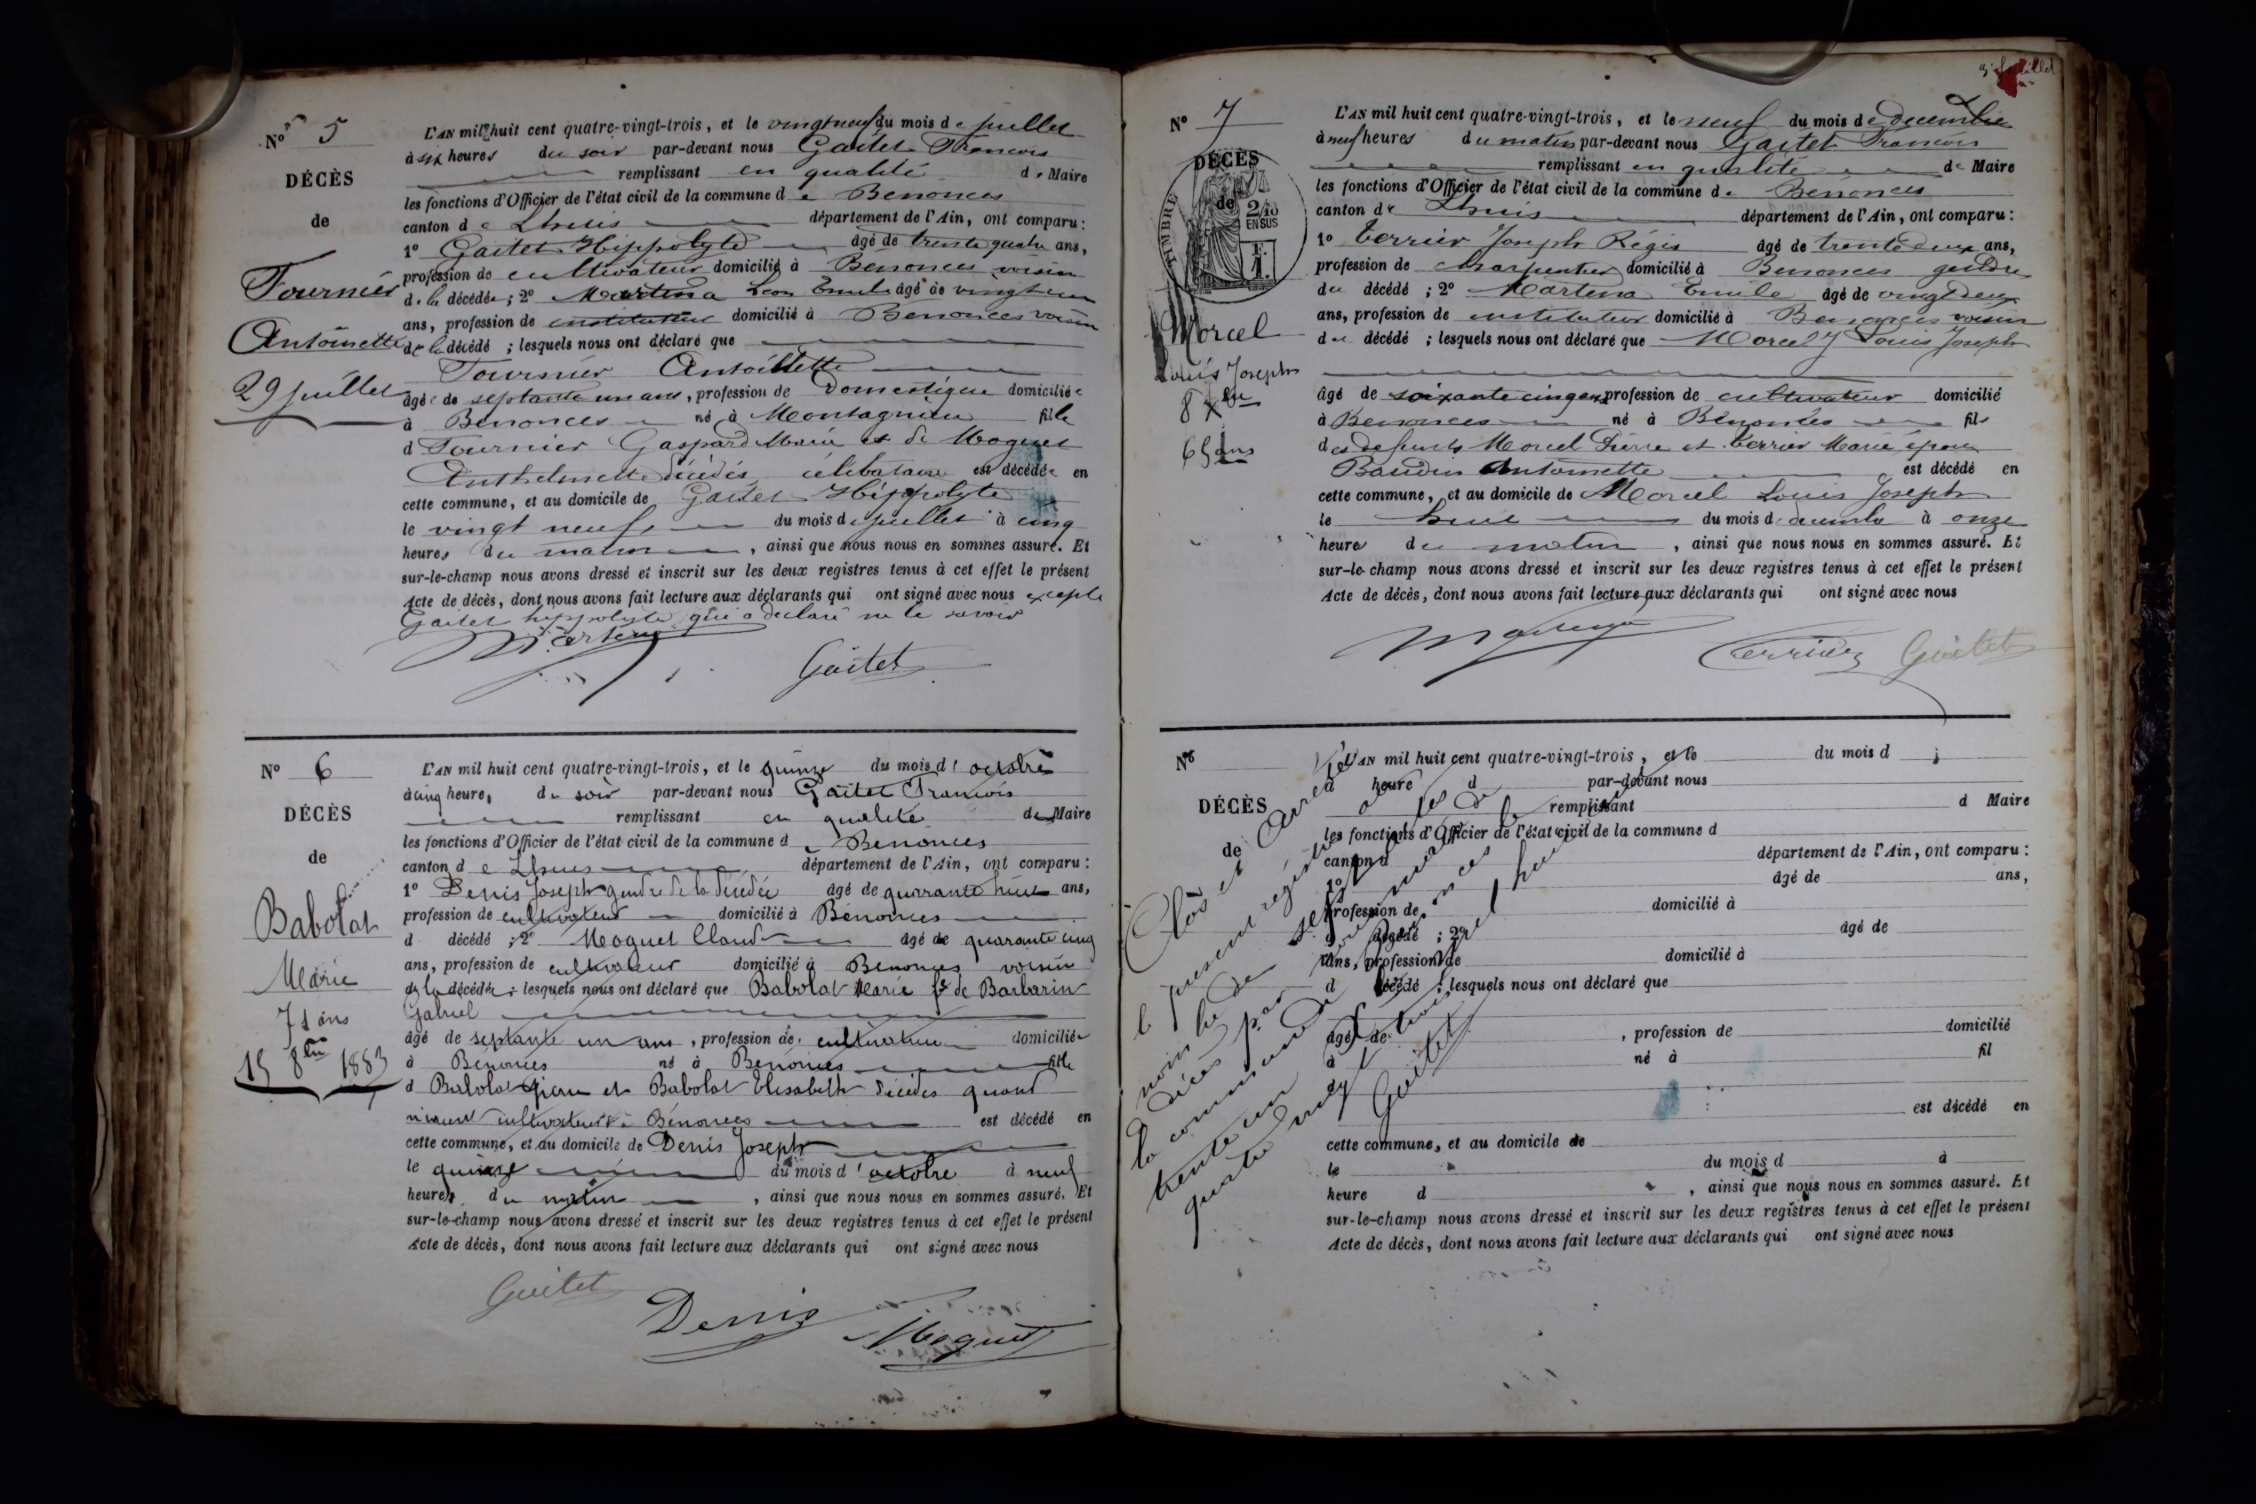 N° 5
DÉCÈS
de
Fournier
Antoinette
29 juillet
L'AN mil huit cent quatre-vingt-trois, et le vingt neuf du mois de juillet
à six heures du soir par-devant nous Gaitet François
remplissant en qualité de Maire
les fonctions d'Officier de l'état civil de la commune de Benonces
canton de Lhuis département de l'Ain, ont comparu :
1° Gaitet Hippolyte âgé de trente quatre ans,
profession de cultivateur domicilié à Benonces voisin
de la décédée ; 2° Martena Léon Emile âgé de vingt
ans, profession de instituteur domicilié à Benonces voisin
de la décédé ; lesquels nous ont déclaré que
Fournier Antoinette
âgée de septante un ans, profession de domestique domiciliée
à Benonces né à Montagnieu fille
d Fournier Gaspard Marie et de Moguet
Anthelmette décédés, célibataire est décédée en
cette commune, et au domicile de Gaitet Hippolyte
le vingt neuf du mois de juillet à cinq
heures du matin, ainsi que nous nous en sommes assuré. Et
sur-le-champ nous avons dressé et inscrit sur les deux registres tenus à cet effet le présent
Acte de décès, dont nous avons fait lecture aux déclarants qui ont signé avec nous excepté
Gaitet hippolyte qui a déclaré ne le savoir
Martena
Gaitet
N° 6
DÉCÈS
de
Babolat
Marie
71 ans
15 8bre 1883
L'AN mil huit cent quatre-vingt-trois, et le quinze du mois d'octobre
à cinq heures du soir par-devant nous Gaitet François
remplissant en qualité de Maire
les fonctions d'Officier de l'état civil de la commune de Benonces
canton de Lhuis département de l'Ain, ont comparu :
1° Denis Joseph gendre de la décédée âgé de quarante huit ans,
profession de cultivateur domicilié à Bénonces
d décédé ; 2° Moguet Claude âgé de quarante cinq
ans, profession de cultivateur domicilié à Benonces voisin
de la décédée ; lesquels nous ont déclaré que Babolat Marie fe de Barbarin
Gabriel
âgé de septante un ans, profession de cultivateur domiciliée
à Bénonces né à Benonces fille
d Babolat Pierre et Babolat Elisabeth décédés quand
vivant cultivateurs à Bénonces est décédé en
cette commune, et au domicile de Denis Joseph
le quinze du mois d'octobre à neuf
heures du matin, ainsi que nous nous en sommes assuré. Et
sur-le-champ nous avons dressé et inscrit sur les deux registres tenus à cet effet le présent
Acte de décès, dont nous avons fait lecture aux déclarants qui ont signé avec nous
Gaitet
Denis
Moguet
3e feuillet
N° 7
DÉCÈS
de
TIMBRE
2/10
EN SUS
Morcel
Louis Joseph
8 Xbre
65 ans
L'AN mil huit cent quatre-vingt-trois, et le neuf du mois de decembre
à neuf heures du matin par-devant nous Gaitet François
remplissant en qualité de Maire
les fonctions d'Officier de l'état civil de la commune de Benonces
canton de Lhuis département de l'Ain, ont comparu :
1° Terrier Joseph Régis âgé de trente deux ans,
profession de charpentier domicilié à Benonces gendre
du décédé ; 2° Martena Emile âgé de vingt deux
ans, profession de instituteur domicilié à Benonces voisin
du décédé ; lesquels nous ont déclaré que Morcel Louis Joseph
âgé de soixante cinq ans profession de cultivateur domicilié
à Benonces né à Bénonces fils
des defunts Morcel Pierre et Terrier Marie époux
Baudin Antoinette est décédé en
cette commune, et au domicile de Morcel Louis Joseph
le huit du mois de decembre à onze
heures du matin, ainsi que nous nous en sommes assuré. Et
sur-le-champ nous avons dressé et inscrit sur les deux registres tenus à cet effet le présent
Acte de décès, dont nous avons fait lecture aux déclarants qui ont signé avec nous
Martena
Terrier
Gaitet
N°
DÉCÈS
de
L'AN mil huit cent quatre-vingt-trois, et le du mois d
à heure d par-devant nous
remplissant d Maire
les fonctions d'Officier de l'état civil de la commune d
canton d département de l'Ain, ont comparu :
1° âgé de ans,
profession de domicilié à
d décédé ; 2° âgé de
ans, profession de domicilié à
d décédé ; lesquels nous ont déclaré que
âgé de , profession de domicilié
à né à fil
d
est décédé en
cette commune, et au domicile de
le du mois d à
heure d , ainsi que nous nous en sommes assuré. Et
sur-le-champ nous avons dressé et inscrit sur les deux registres tenus à cet effet le présent
Acte de décès, dont nous avons fait lecture aux déclarants qui ont signé avec nous
Clos et arrêté
le présent registre
de sept actes de
décès par nous maire de
la commune de Benonces le
trente un
quatre vingt trois
Gaitet